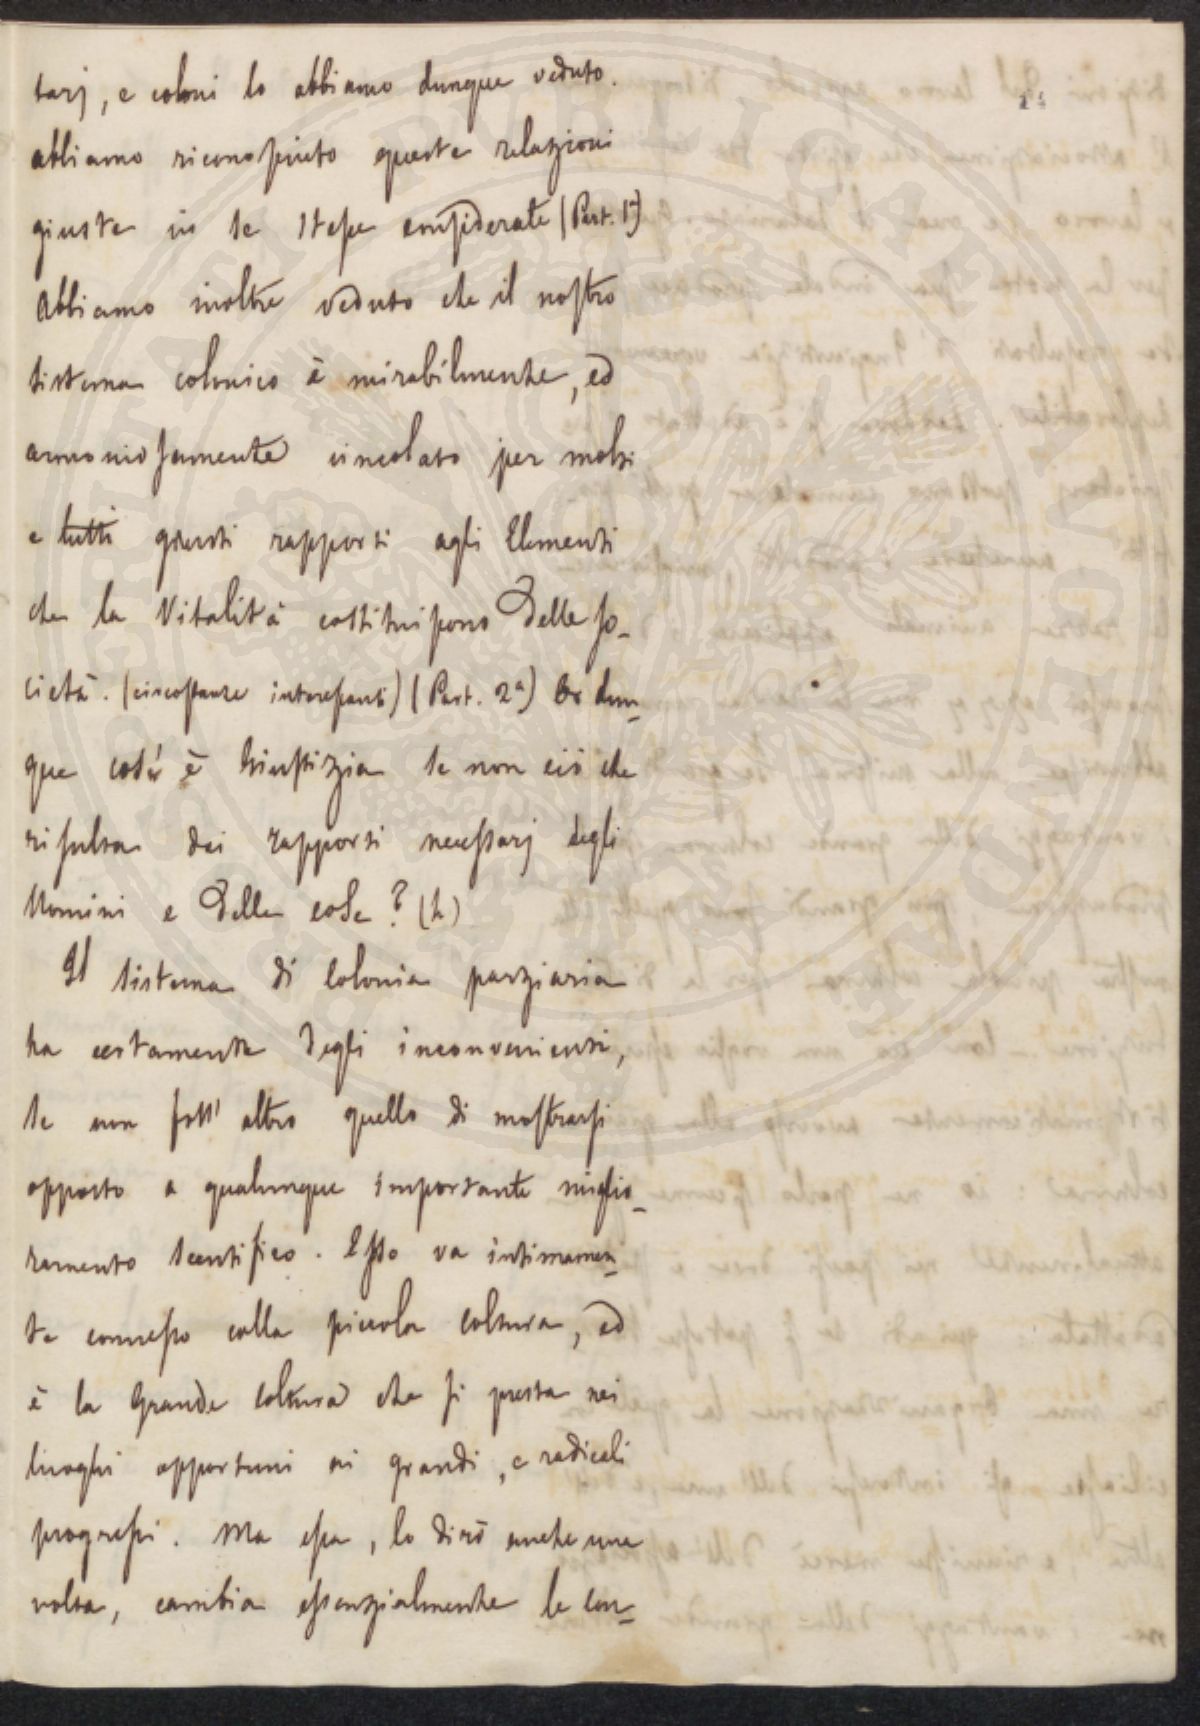 tarj, e coloni lo abbiamo dunque veduto.
abbiamo riconosciuto queste relazioni
giuste in se stesse considerate (Part. 1ª)
Abbiamo inoltre veduto che il nostro
sistema colonico è mirabilmente, ed
armoniosamente vincolato per molti
e tutti giusti rapporti agli Elementi
che la Vitalità costituiscono delle so-
cietà. (circostanze interessanti) (Part. 2ª) Or dun-
que cos'è Giustizia se non ciò che
risulta dai rapporti necessarj degli
Uomini e delle cose? (h)
Il sistema di Colonia parziaria
ha certamente degli inconvenienti,
se non foss' altro quello di mostrarsi
opposto a qualunque importante miglio-
ramento scentifico. Esso va intimamen-
te connesso colla piccola coltura, ed
è la Grande Coltura che si presta nei
luoghi opportuni ai grandi, e radicali
progressi. Ma essa, lo dirò anche una
volta, cambia essenzialmente le con-